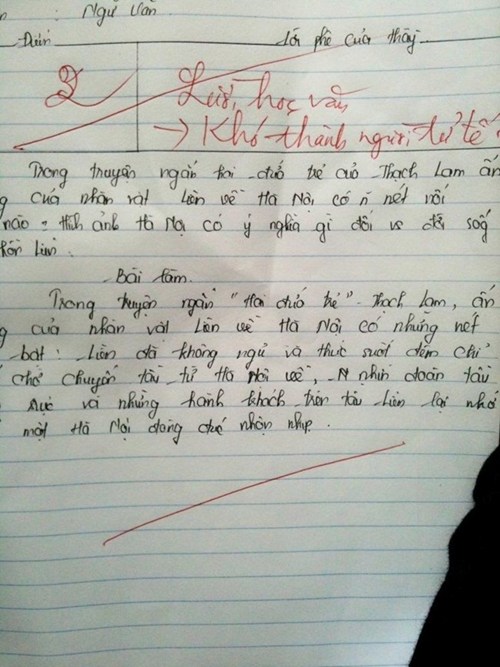 Ngữ Văn
Điểm Lời phê của thầy
2 Lười học văn
→ Khó thành người tử tế
Trong truyện ngắn hai đứa trẻ của Thạch Lam ấn
g của nhân vật Liên về Hà Nội có n nét nổi
nào = Hình ảnh Hà Nội có ý nghĩa gì đối vs đời sống
hồn Liên
Bài làm
Trong truyện ngắn "Hai đứa trẻ" - Thạch Lam, ấn
g của nhân vật Liên về Hà Nội có những nét
bật: Liên đã không ngủ và thức suốt đêm chỉ
chờ chuyến tàu từ Hà Nội về, nhìn đoàn tàu
rực và những hành khách trên tàu Liên lại nhớ
một Hà Nội đông đúc nhộn nhịp.